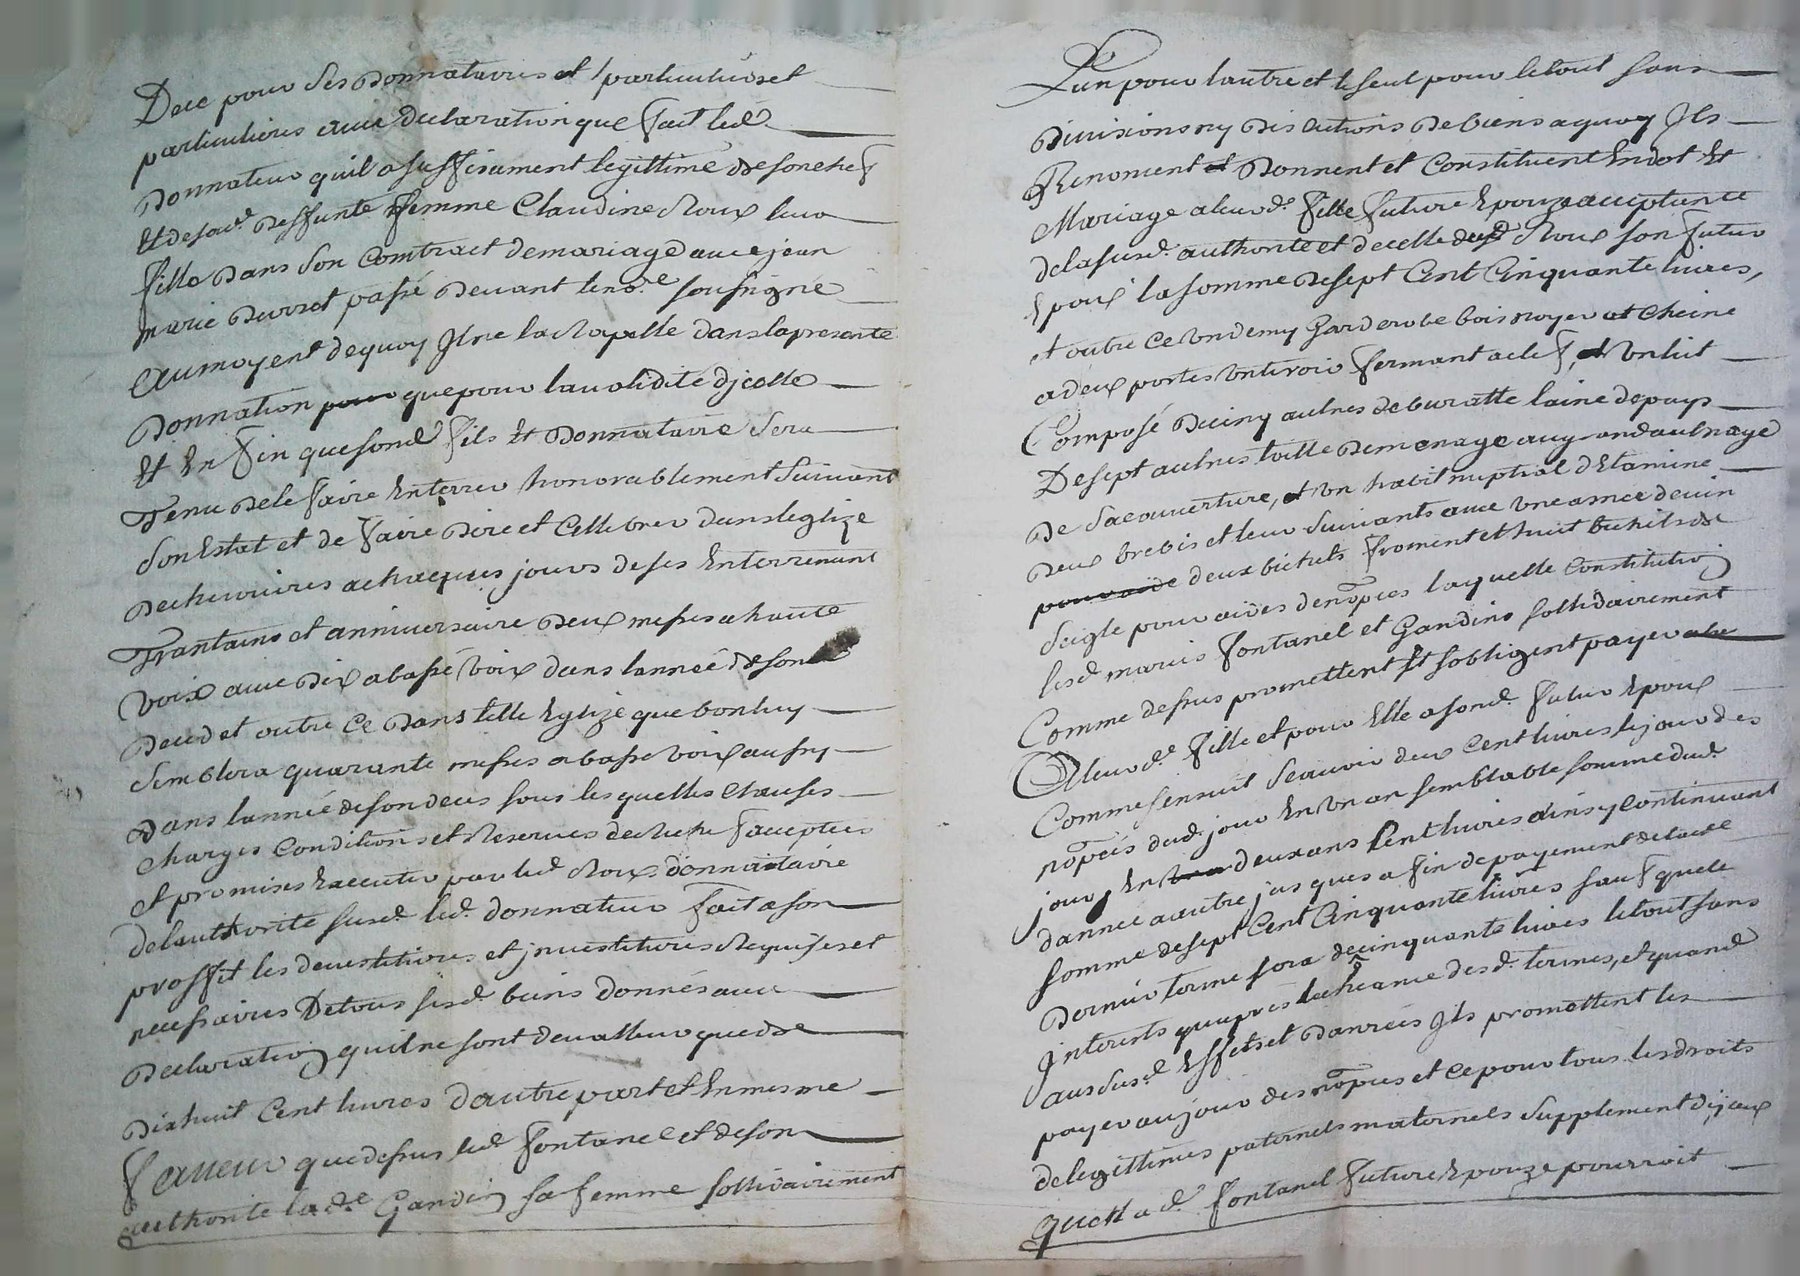 Dece pour ses donnataires et particuliers et
particulieres avec declaration que fait led
Donnateur quil a suffisament legittimé de son chef
Et de sad. deffunte femme Claudine Roux leur
fille dans son Comtract de mariage avec jean
marie Durret passé devant le no.re soussigné
au moyent de quoy Il ne la Rapelle dans la presente
Donnation que pour la validité djcelle
Et En fin que sond fils Et Donnataire Sera
Tenu de le faire Enterrer honorablement Suivant
son Estat et de faire dire et Cellebrer dans leglize
de chevrieres a chacques jours de ses Enterrement
Trantains et anniversaire Deux messes a haute
Voix avec dix a basse Voix dans lannée de son
Deced et outre Ce dans telle Eglize que bon luy
Semblera quarante messes a basse voix aussy
Dans lannée de son deces sous lesquelles Chauses
Charges Conditions et Reserves de Riche f acceptees
Et promises Executer par led Roux donnataire
de lauthorité susd. led. donnateur fait a son
proffit les devestitures et jnvestitures Requises et
necessaires De tous sesd. biens donnés avec
Declaration quil ne sont de valleur que de
Dix huit Cent livres dautre part et En mesme
faveur que dessus led fontanel et de son
authorité lad.e Gandin sa femme sollidairement
Lun pour lautre et le seul pour le tout sans
Divisions ny discutions de biens a quoy Ils
Renoncent Donnent et Constituent En dot Et
Mariage a leur d. fille future Epouze acceptante
de la susd. authorité et de celle dud Roux son futur
Epoux la somme de sept Cent Cinquante livres,
et outre Ce Un demy Garderobe bois noyer et cheine
a deux portes Un tiroir fermant a clef, Un lit
Composé de cinq aulnes de buratte laine de pays
De sept aulnes toille de menage au grand aulnage
De sa couverture, et Un habit nuptial dEtamine
Deux brebis et leur Suivants avec Une asnee de vin
deux bichets froment et huit bichets de
Seigle pour aides de nopces laquelle Constitution
lesd. mariés fontanel et Gandins sollidairement
Comme dessus promettent Et sobligent payer a la
a leur d. fille et pour Elle a sond. futur Epoux
Comme sensuit Scavoir deux Cent livres le jour des
nopces dud. jour En Un an semblable somme dud.
jour En deux ans Cent livres ainsy Continuant
dannee a autre jusques a fin de payement de lad.e
somme de sept Cent Cinquante livres sauf que le
Dernier terme sera de cinquante livres le tout sans
Interests quapres lecheance desd. termes, et quand
aus susd. Effets et danrées Ils promettent les
payer au jour des nopces et Ce pour tous les droits
de legittimes paternels maternels Supplement djceux
que lad. fontanel future Epouze pourroit